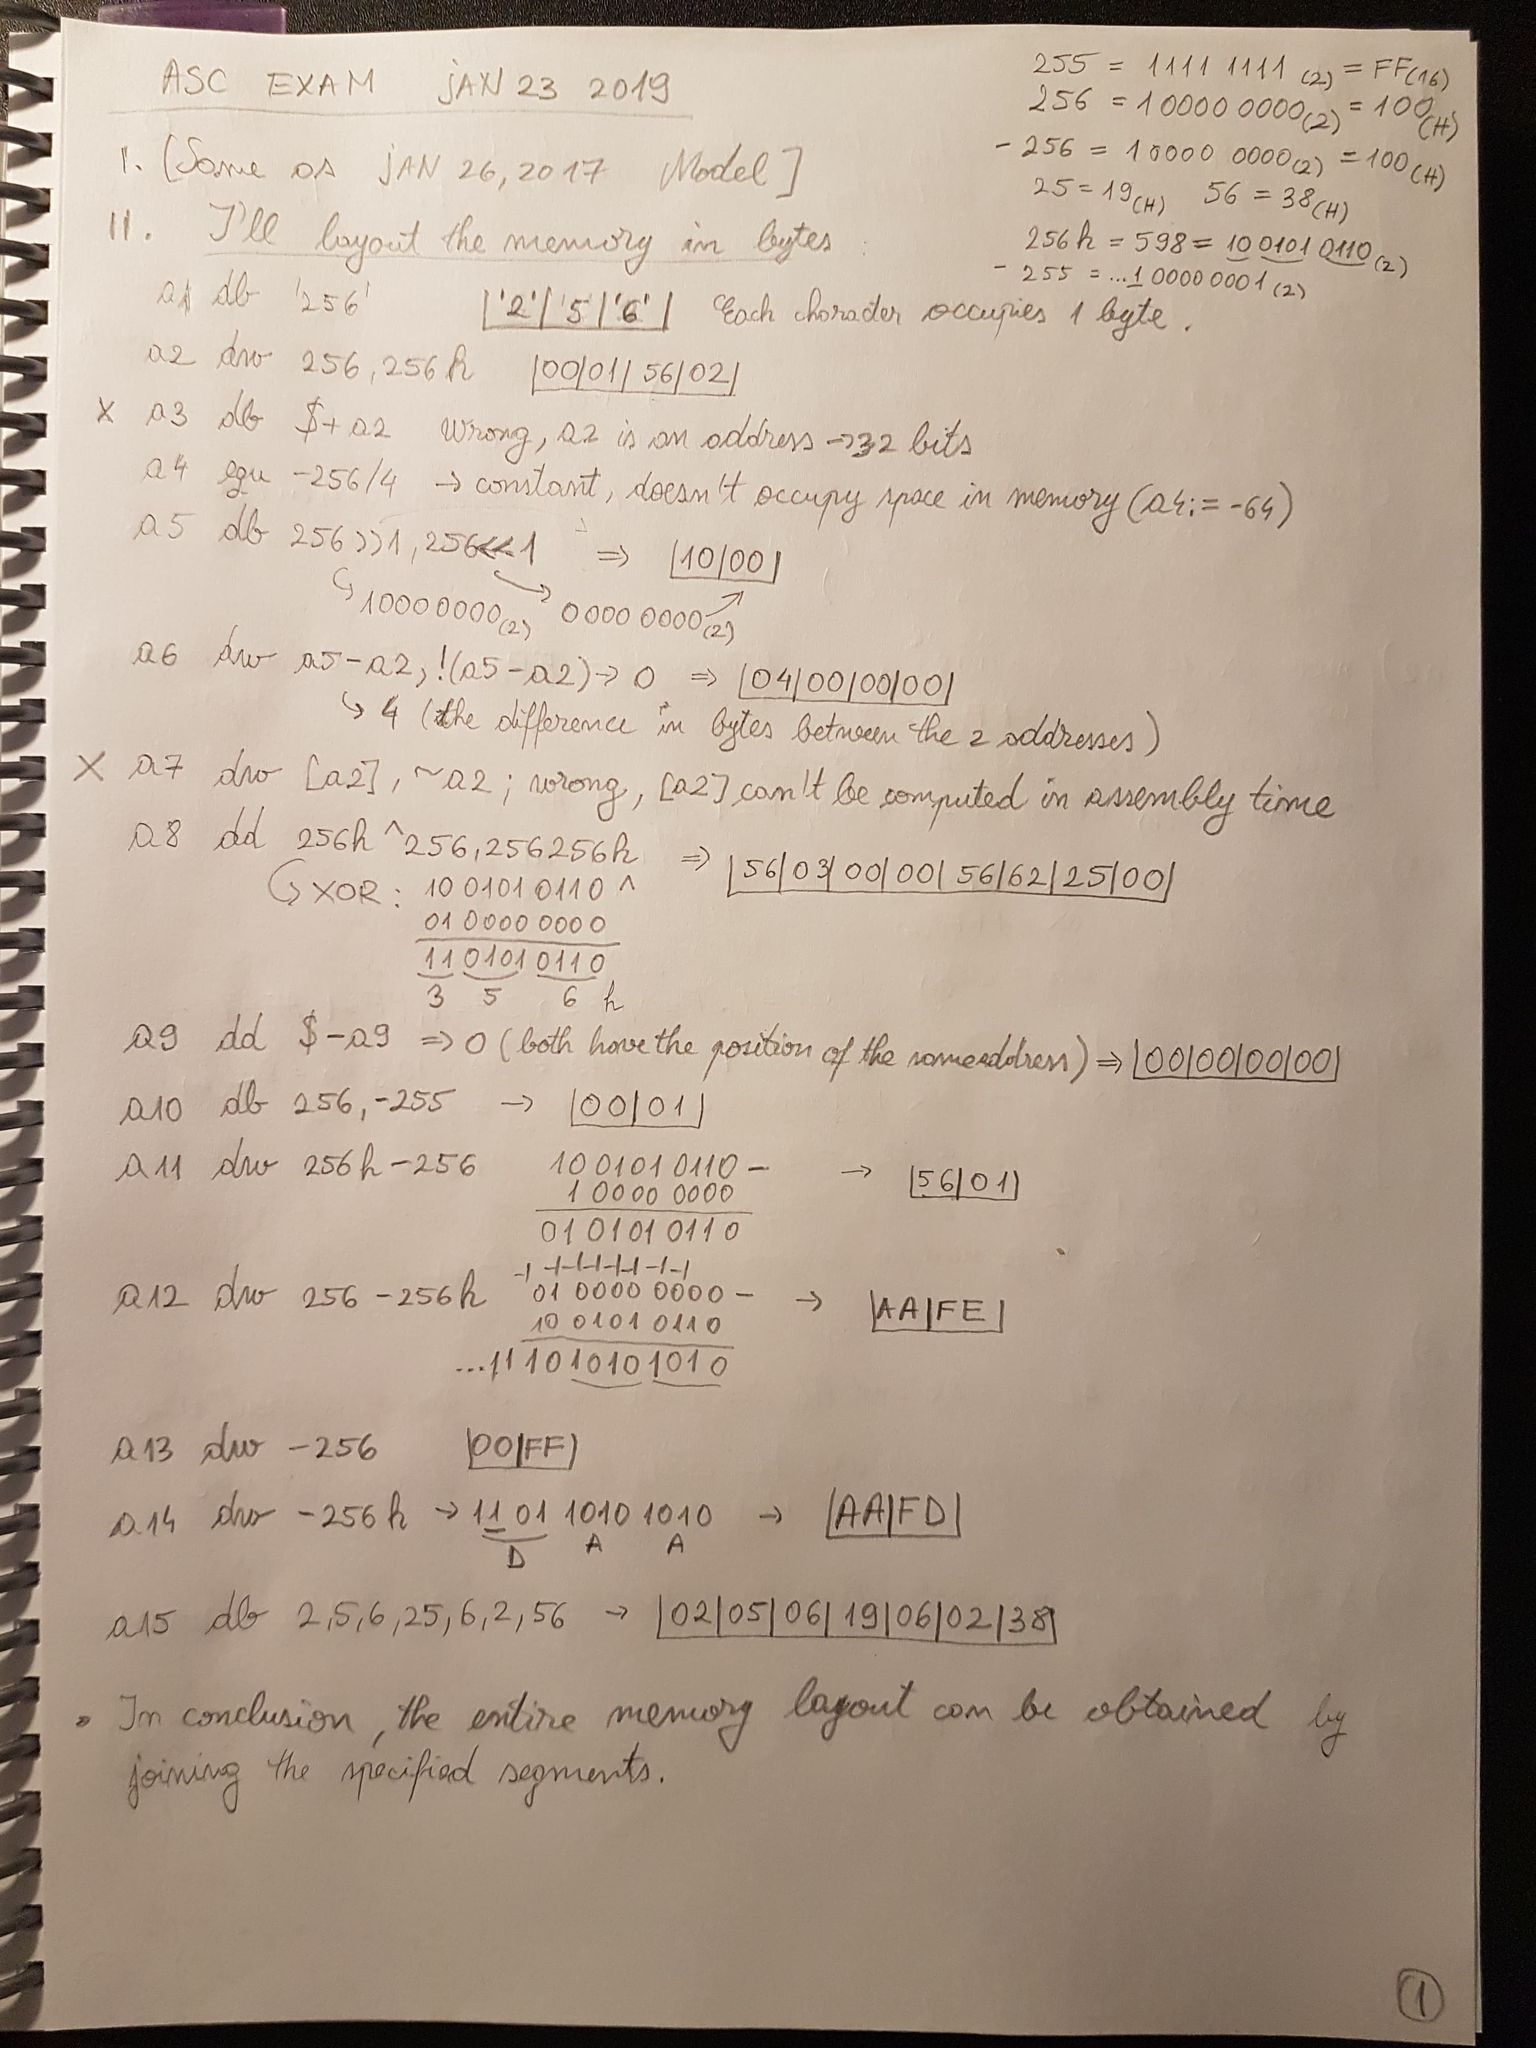 ASC EXAM JAN 23 2019
255 = 1111 1111 (2) = FF(16)
256 = 10000 0000(2) = 100(H)
- 256 = 10000 0000(2) = 100(H)
25 = 19(H) 56 = 38(H)
256h = 598 = 10 0101 0110(2)
- 255 = ...1 0000 0001(2)
I. [Same as JAN 26, 2017 Model]
II. I'll layout the memory in bytes:
a1 db '256' |'2'|'5'|'6'| Each character occupies 1 byte.
a2 dw 256, 256h |00|01|56|02|
x a3 db $+a2 Wrong, a2 is an address → 32 bits
a4 equ -256/4 → constant, doesn't occupy space in memory (a4:= -64)
a5 db 256>>1, 256<<1 ⇒ |10|00|
10000000(2) 0000 0000(2)
a6 dw a5-a2, !(a5-a2) → 0 ⇒ |04|00|00|00|
↳ 4 (the difference in bytes between the 2 addresses)
X a7 dw [a2], ~a2 ; wrong, [a2] can't be computed in assembly time
a8 dd 256h ^ 256, 256256h ⇒ |56|03|00|00|56|62|25|00|
XOR: 10 0101 0110 ^
01 0000 0000
11 0101 0110
3 5 6 h
a9 dd $-a9 ⇒ 0 (both have the position of the same address) ⇒ |00|00|00|00|
a10 db 256, -255 → |00|01|
a11 dw 256h - 256 10 0101 0110 - → |56|01|
1 0000 0000
01 0101 0110
-1 -1-1-1-1-1-1-1
a12 dw 256 - 256h 01 0000 0000 - → |AA|FE|
10 0101 0110
...11 10 1010 1010
a13 dw -256 |00|FF|
a14 dw -256h → 11 01 1010 1010 → |AA|FD|
D A A
a15 db 2,5,6,25,6,2,56 → |02|05|06|19|06|02|38|
• In conclusion, the entire memory layout can be obtained by
joining the specified segments.
1